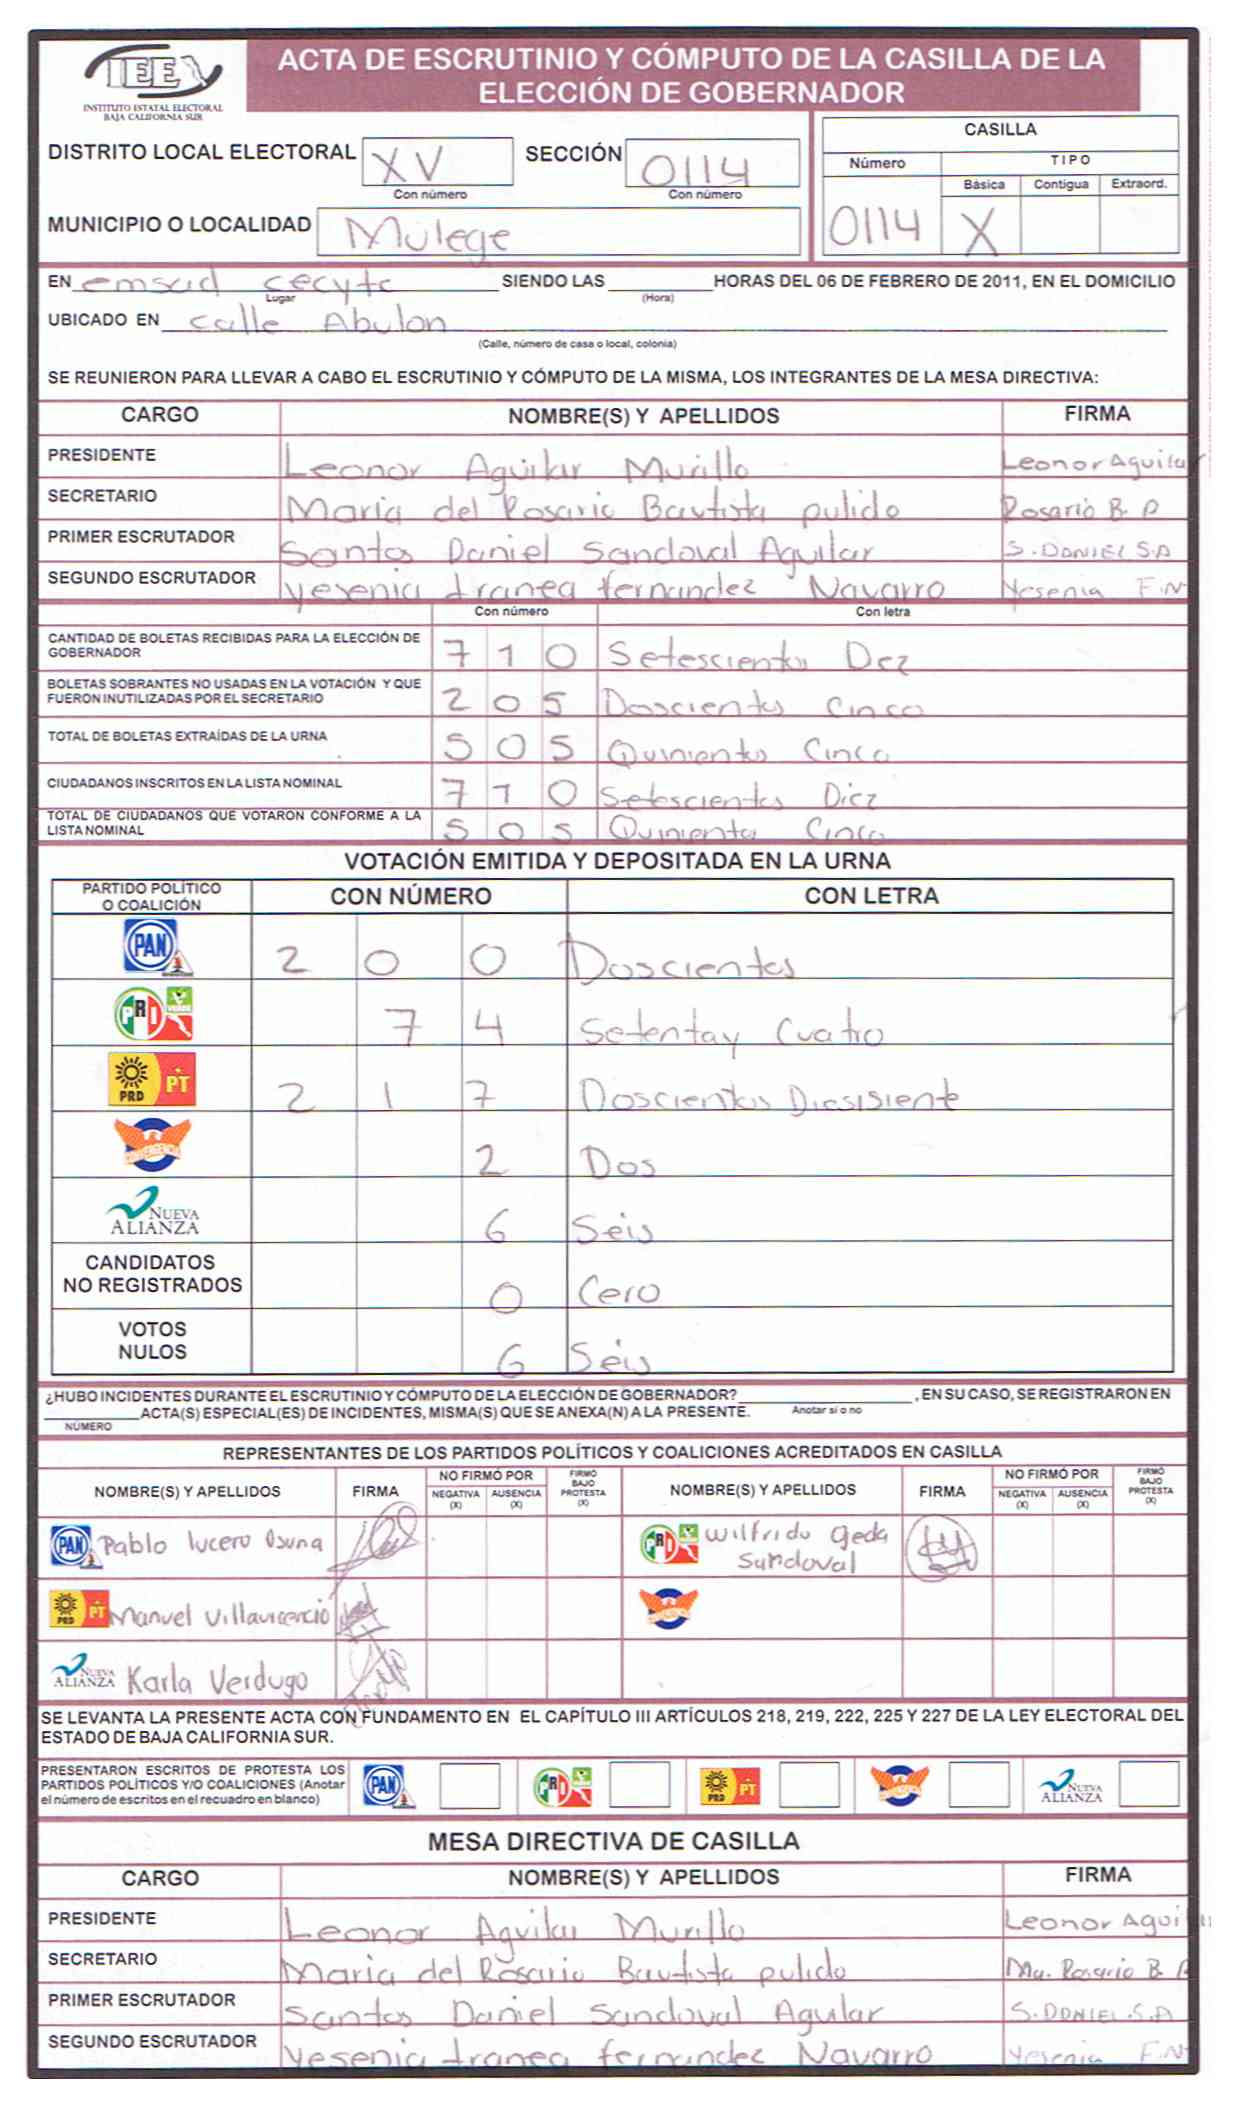 IEE
INSTITUTO ESTATAL ELECTORAL
BAJA CALIFORNIA SUR
ACTA DE ESCRUTINIO Y CÓMPUTO DE LA CASILLA DE LA
ELECCIÓN DE GOBERNADOR
DISTRITO LOCAL ELECTORAL XV SECCIÓN 0114
Con número Con número
MUNICIPIO O LOCALIDAD Mulege
CASILLA
Número TIPO
Básica Contigua Extraord.
0114 X
EN emsad cecyte SIENDO LAS HORAS DEL 06 DE FEBRERO DE 2011, EN EL DOMICILIO
Lugar (Hora)
UBICADO EN calle Abulon
(Calle, número de casa o local, colonia)
SE REUNIERON PARA LLEVAR A CABO EL ESCRUTINIO Y CÓMPUTO DE LA MISMA, LOS INTEGRANTES DE LA MESA DIRECTIVA:
CARGO NOMBRE(S) Y APELLIDOS FIRMA
PRESIDENTE Leonor Aguilar Murillo Leonor Aguilar
SECRETARIO Maria del Rosario Bautista pulido Rosario B. P
PRIMER ESCRUTADOR Santos Daniel Sandoval Aguilar S. DANIEL S.A
SEGUNDO ESCRUTADOR Yesenia Iranea fernandez Navarro Yesenia F.N
Con número Con letra
CANTIDAD DE BOLETAS RECIBIDAS PARA LA ELECCIÓN DE
GOBERNADOR 7 1 0 Setescientos Dez
BOLETAS SOBRANTES NO USADAS EN LA VOTACIÓN Y QUE
FUERON INUTILIZADAS POR EL SECRETARIO 2 0 5 Doscientos Cinco
TOTAL DE BOLETAS EXTRAÍDAS DE LA URNA 5 0 5 Quinientos Cinco
CIUDADANOS INSCRITOS EN LA LISTA NOMINAL 7 1 0 Setescientos Diez
TOTAL DE CIUDADANOS QUE VOTARON CONFORME A LA
LISTA NOMINAL 5 0 5 Quinientos Cinco
VOTACIÓN EMITIDA Y DEPOSITADA EN LA URNA
PARTIDO POLÍTICO
O COALICIÓN CON NÚMERO CON LETRA
PAN 2 0 0 Doscientos
PRI VERDE 7 4 Setentay Cuatro
PRD PT 2 1 7 Doscientos Diesisiente
CONVERGENCIA 2 Dos
NUEVA ALIANZA 6 Seis
CANDIDATOS
NO REGISTRADOS 0 Cero
VOTOS
NULOS 6 Séis
¿HUBO INCIDENTES DURANTE EL ESCRUTINIO Y CÓMPUTO DE LA ELECCIÓN DE GOBERNADOR? , EN SU CASO, SE REGISTRARON EN
ACTA(S) ESPECIAL(ES) DE INCIDENTES, MISMA(S) QUE SE ANEXA(N) A LA PRESENTE. Anotar si o no
NÚMERO
REPRESENTANTES DE LOS PARTIDOS POLÍTICOS Y COALICIONES ACREDITADOS EN CASILLA
NOMBRE(S) Y APELLIDOS FIRMA NO FIRMÓ POR NEGATIVA (X) AUSENCIA (X) FIRMÓ BAJO PROTESTA (X) NOMBRE(S) Y APELLIDOS FIRMA NO FIRMÓ POR NEGATIVA (X) AUSENCIA (X) FIRMÓ BAJO PROTESTA (X)
PAN Pablo lucero Osuna PRI Wilfrido Ojeda
Sandoval
PRD PT Manuel Villavicencio
NUEVA ALIANZA Karla Verdugo
SE LEVANTA LA PRESENTE ACTA CON FUNDAMENTO EN EL CAPÍTULO III ARTÍCULOS 218, 219, 222, 225 Y 227 DE LA LEY ELECTORAL DEL
ESTADO DE BAJA CALIFORNIA SUR.
PRESENTARON ESCRITOS DE PROTESTA LOS
PARTIDOS POLÍTICOS Y/O COALICIONES (Anotar
el número de escritos en el recuadro en blanco) PAN PRI PRD PT NUEVA ALIANZA
MESA DIRECTIVA DE CASILLA
CARGO NOMBRE(S) Y APELLIDOS FIRMA
PRESIDENTE Leonor Aguilar Murillo Leonor Agui
SECRETARIO Maria del Rosario Bautista pulido Ma. Rosario B. P
PRIMER ESCRUTADOR Santos Daniel Sandoval Aguilar S. DANIEL.S.A
SEGUNDO ESCRUTADOR Yesenia Iranea fernandez Navarro Yesenia F.N